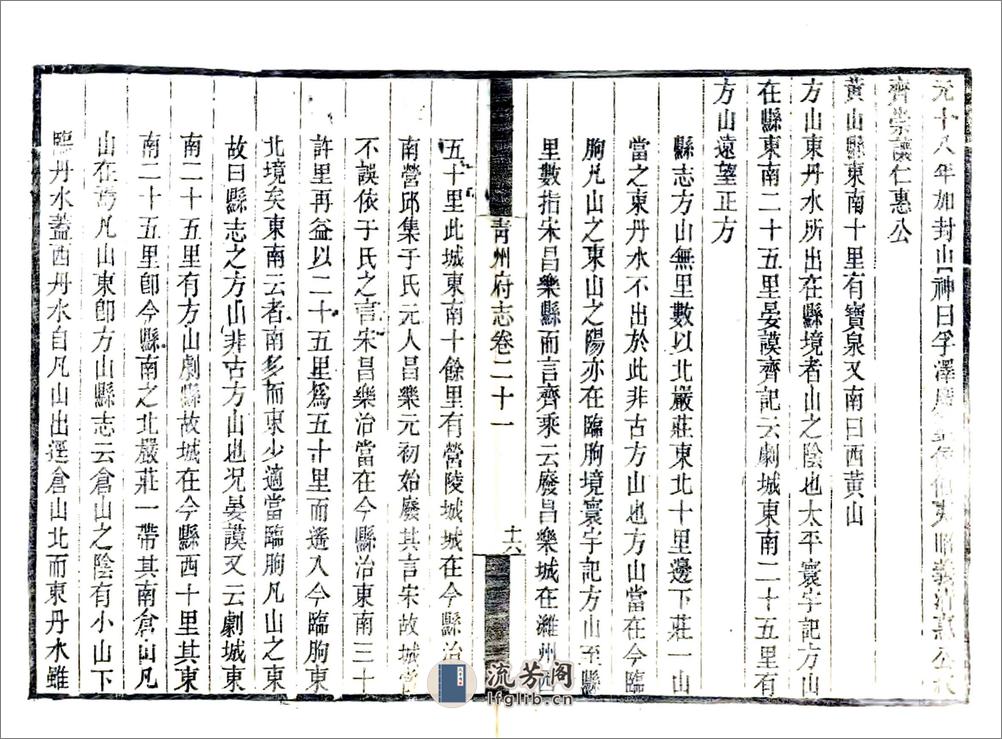 元十八年加封山神曰孚澤廣 伯夷昭義清惠公叔
齊崇讓仁惠公
黃山縣東南十里有寶泉又南曰西黃山
方山東丹水所出在縣境者山之陰也太平寰宇記方山
在縣東南二十五里晏謨齊記云劇城東南二十五里有
方山遠望正方
縣志方山無里數以北嚴莊東北十里邊下莊一山
當之東丹水不出於此非古方山也方山當在今臨
朐凡山之東山之陽亦在臨朐境寰宇記方山至縣
里數指宋昌樂縣而言齊乘云廢昌樂城在濰州
青州府志卷二十一
十六
五十里此城東南十餘里有營陵城城在今縣治
南營邱集于氏元人昌樂元初始廢其言宋故城當
不誤依于氏之言宋昌樂治當在今縣治東南三十
許里再益以二十五里爲五十里而遙入今臨朐東
北境矣東南云者南多而東少適當臨朐凡山之東
故曰縣志之方山非古方山也況晏謨又云劇城東
南二十五里有方山劇縣故城在今縣西十里其東
南二十五里卽今縣南之北嚴莊一帶其南倉山凡
山在焉凡山東卽方山縣志云倉山之陰有小山下
臨丹水蓋西丹水自凡山出逕倉山北而東丹水雖
流芳阁
lfglib.cn